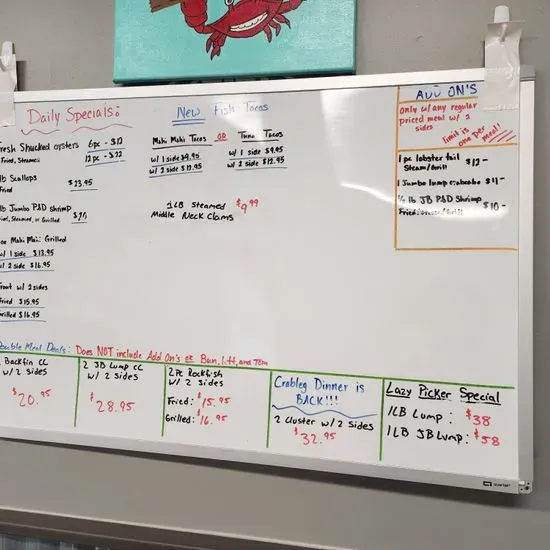 Daily Specials:
resh Shucked oysters 6pc - $12
Fried, Steamed 12pc - $22
lb Scallops
Fried $23.95
lb Jumbo P&D shrimp
ied, Steamed, or Grilled
Mahi Mahi: Grilled
w/ 1 side $13.95
w/ 2 side $16.95
rout w/ 2 sides
Fried $15.95
Grilled $16.95
New Fish Tacos
Mahi Mahi Tacos OR Tuna Tacos
w/ 1 side $9.95 w/ 1 side $9.95
w/ 2 side $12.95 w/ 2 side $12.95
1LB Steamed $9.99
Middle Neck Clams
ADD ON'S
Only w/ any regular
priced meal w/ 2
sides
limit is one per meal!
1 pc lobster tail $12-
Steam/Grill
1 Jumbo lump $11-
1/2 lb JB P&D Shrimp $10-
Fried/Steam/Grill
Double Meal Deals: Does NOT include Add On's or Bun, lett, and Tom
Backfin CC
w/ 2 sides
$20.95
2 JB Lump CC
w/ 2 Sides
$28.95
2 PC Rockfish
w/ 2 Sides
Fried: $15.95
Grilled: $16.95
Crableg Dinner is
BACK!!!
2 Cluster w/ 2 Sides
$32.95
Lazy Picker Special
1LB Lump: $38
1LB JB Lump: $58